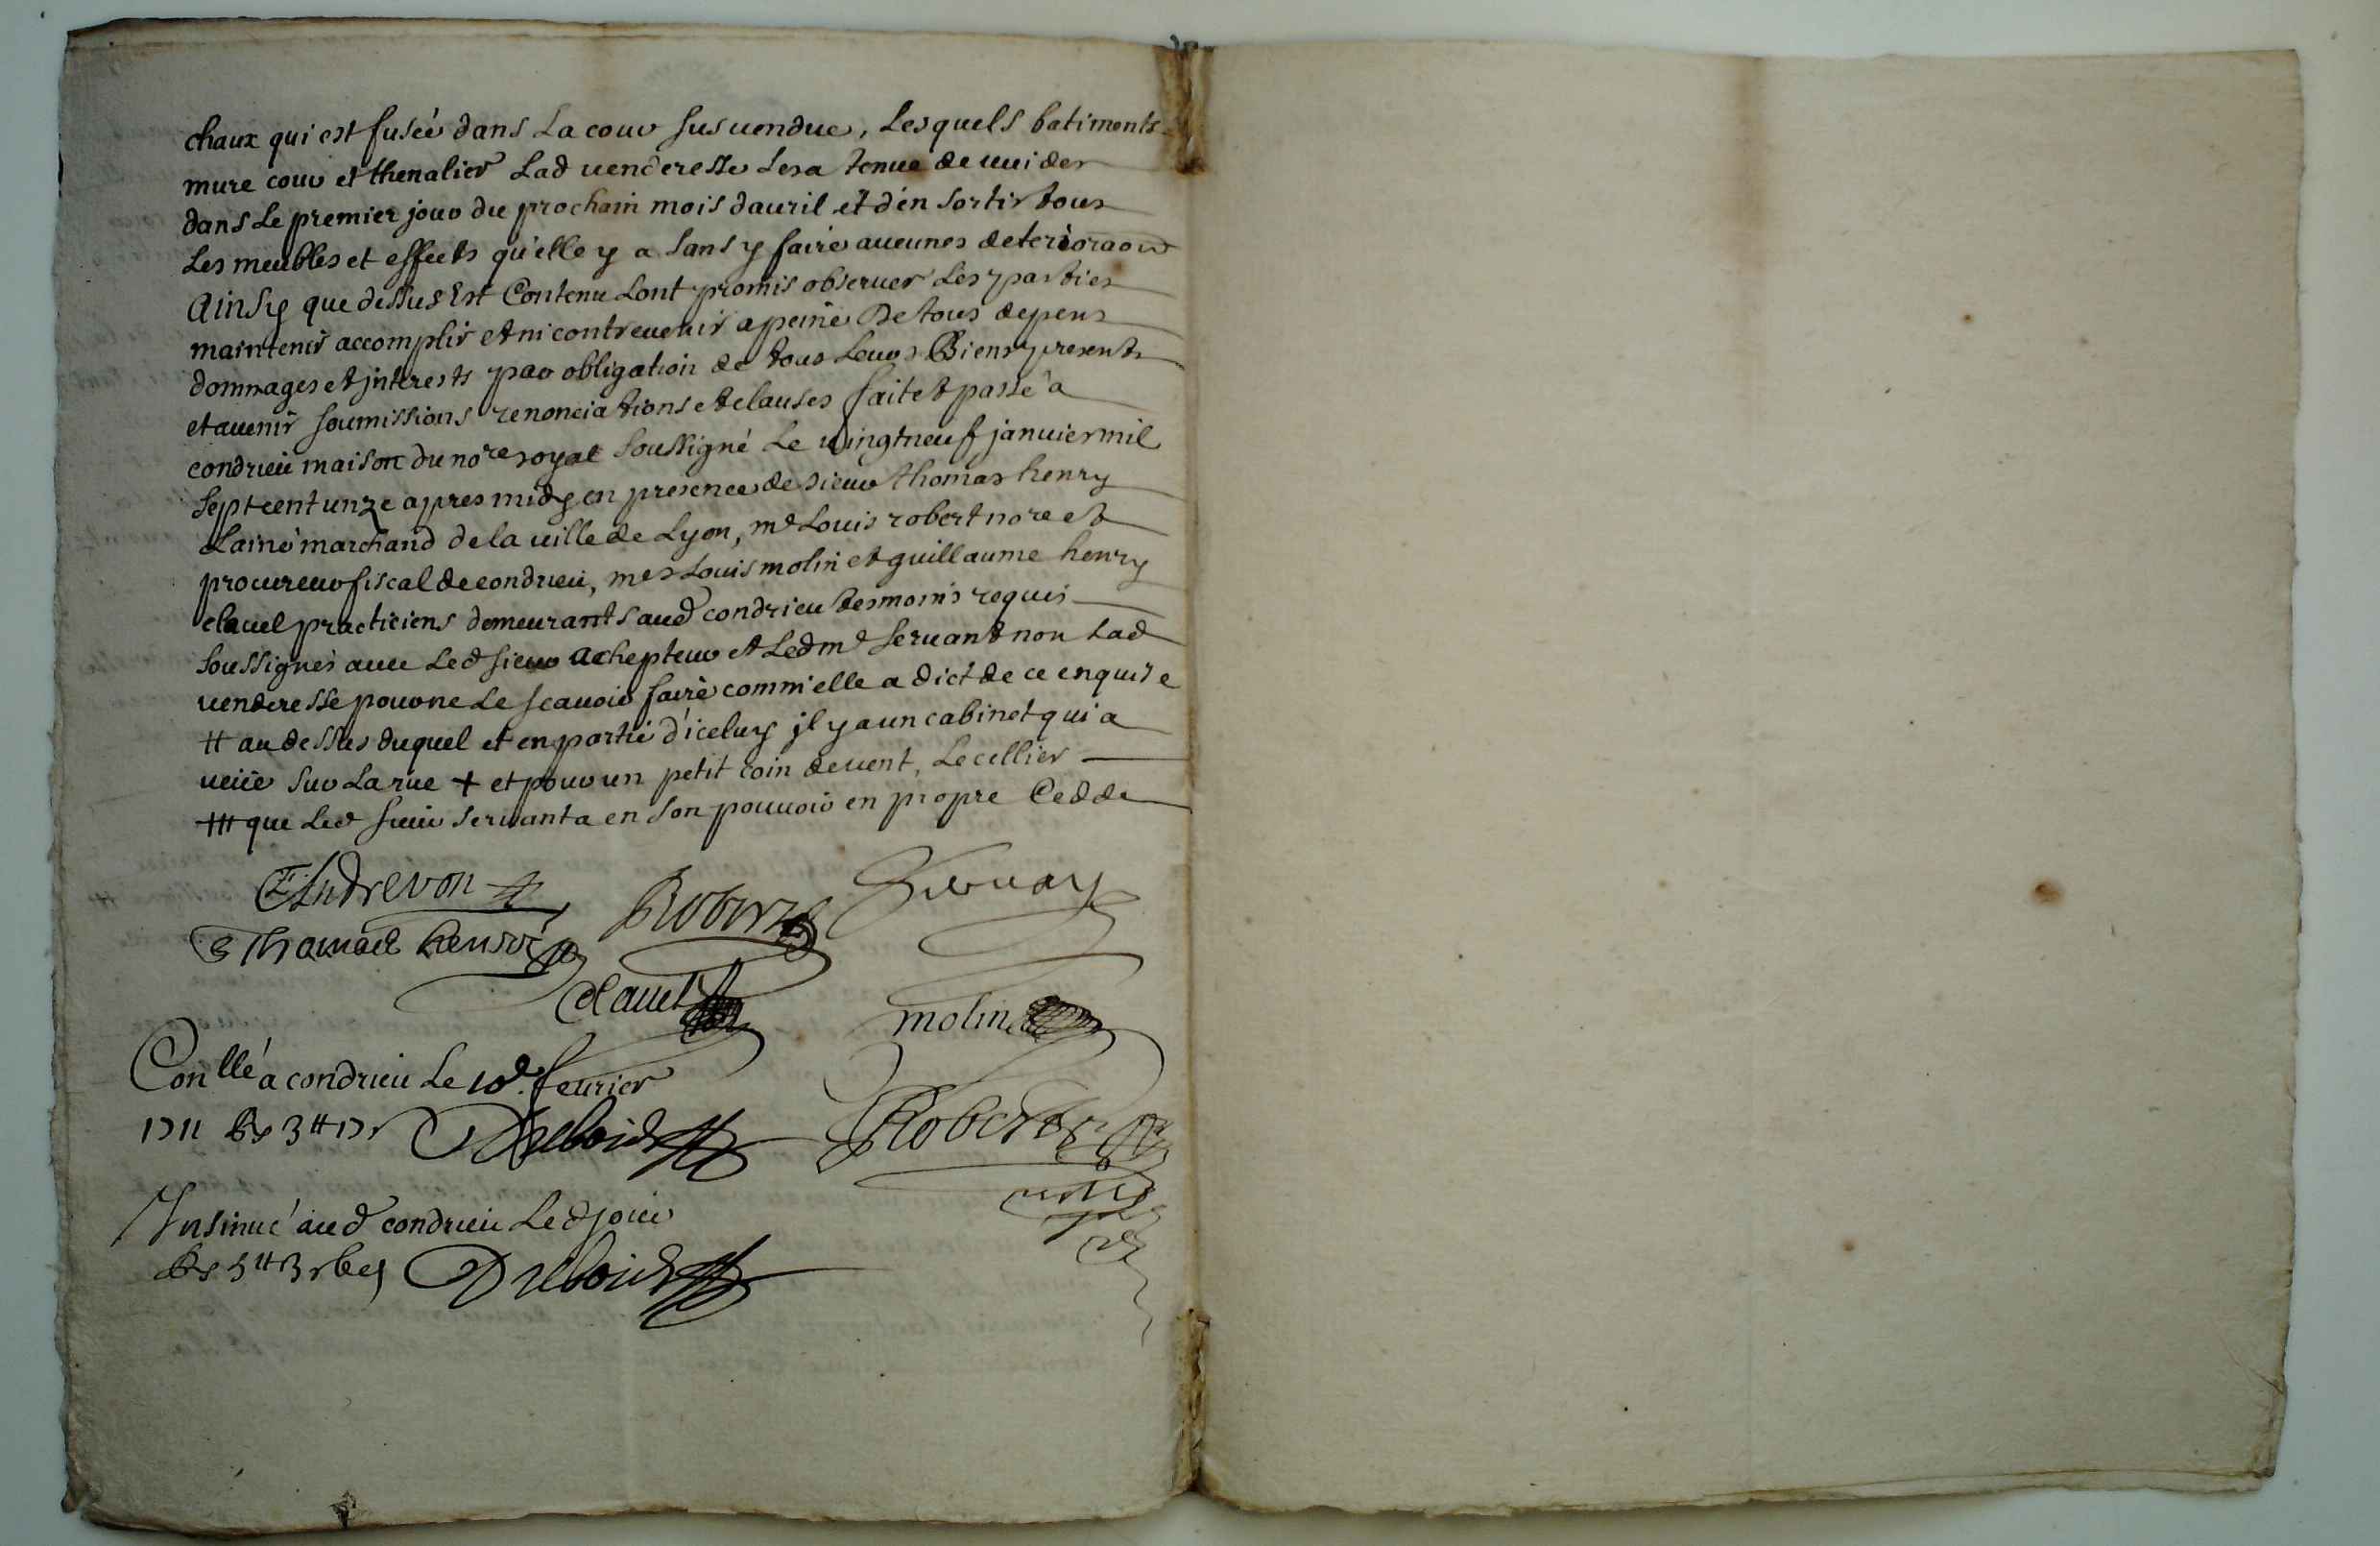 chaux qui est fuseé dans La cour susuendue, Lesquels batiments
mure cour et thenalier Lad uenderesse sera tenue de uuider
dans Le premier jour du prochain mois dauril et d'en sortir tous
Les meubles et effects qu'elle y a sans y faire aucunes deterioraon
Ainsy que dessus Est Contenu Lont promis obseruer Les parties
maintenir accomplir et ni contreuenir a peine De tous depens
dommages et jnterests par obligation de tous Leurs Biens presents
et auenir soumissions renonciations et clauses fait et passé a
condrieu maison du nore royal soussigné Le uingtneuf januier mil
sept cent unze apres midy en presence de sieur thomas henry
Lainé marchand de la uille de Lyon, me Louis robert nore et
procureur fiscal de condrieu, mes Louis molin et guillaume henry
clauel practiciens demeurants aud condrieu tesmoins requis
soussignés auec Led sieur achepteur et Led me seruant non Lad
uenderesse pour ne Le scauoir faire comm'elle a dict de ce enquise
# au dessus duquel et en partie d'iceluy jl y a un cabinet qui a
ueüe sur La rue + et pour un petit coin deuent, Le cellier
++++ que Led sieur seruant a en son pouuoir en propre Cedde
Andrevon Robert
Thomas henri
Clauel molin
Conllé a condrieu Le 10e feurier
1711 Rs 3# Robert
Insinué aud condrieu Led jour
Rs 5#